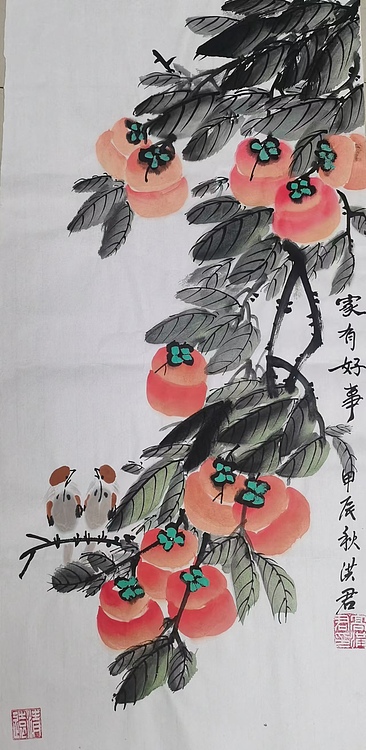 家有好事
甲辰秋洪君
清远